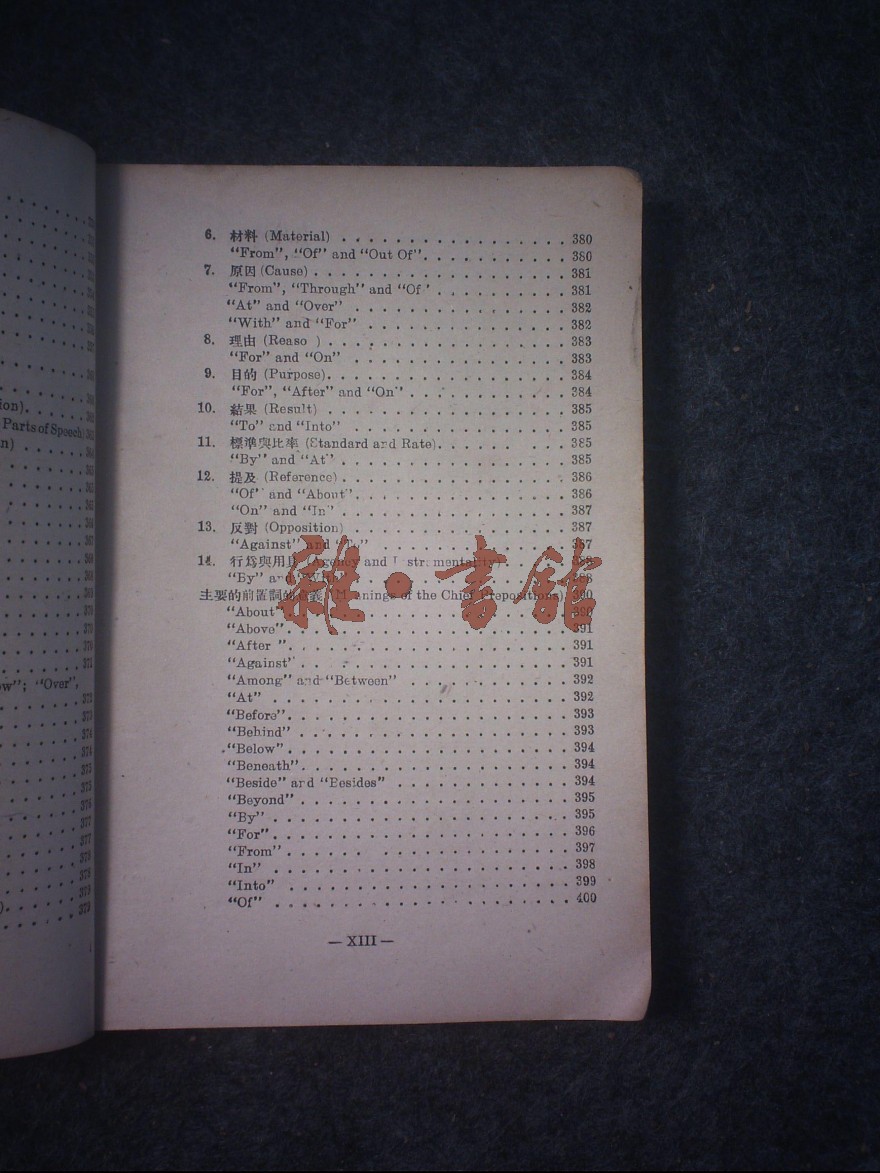 6. 材料 (Material) . . . . . . . . . . . . . . . . . 380
“From”, “Of” and “Out Of”. . . . . . . . . . . 380
7. 原因 (Cause) . . . . . . . . . . . . . . . . . . . 381
“From”, “Through” and “Of” . . . . . . . . . . 381
“At” and “Over” . . . . . . . . . . . . . . . . 382
“With” and “For” . . . . . . . . . . . . . . . 382
8. 理由 (Reaso ) . . . . . . . . . . . . . . . . . . 383
“For” and “On” . . . . . . . . . . . . . . . . 383
9. 目的 (Purpose). . . . . . . . . . . . . . . . . . 384
“For”, “After” and “On” . . . . . . . . . . . . 384
10. 結果 (Result) . . . . . . . . . . . . . . . . . . 385
“To” and “Into” . . . . . . . . . . . . . . . . 385
11. 標準與比率 (Standard and Rate). . . . . . . . . . 385
“By” and “At” . . . . . . . . . . . . . . . . . 385
12. 提及 (Reference). . . . . . . . . . . . . . . . . 386
“Of” and “About”. . . . . . . . . . . . . . . . 386
“On” and “In” . . . . . . . . . . . . . . . . . 387
13. 反對 (Opposition) . . . . . . . . . . . . . . . . 387
“Against” and “To” . . . . . . . . . . . . . . 387
14. 行爲與用具 (Agency and I strumentality) . . . . . 388
“By” and “With” . . . . . . . . . . . . . . . . 388
主要的前置詞的意義 (Meanings of the Chief Prepositions) . 390
“About” . . . . . . . . . . . . . . . . . . . . 390
“Above”. . . . . . . . . . . . . . . . . . . . 391
“After ”. . . . . . . . . . . . . . . . . . . . 391
“Against” . . . . . . . . . . . . . . . . . . . 391
“Among” and “Between” . . . . . . . . . . . . 392
“At” . . . . . . . . . . . . . . . . . . . . . 392
“Before”. . . . . . . . . . . . . . . . . . . . 393
“Behind” . . . . . . . . . . . . . . . . . . . 393
“Below”. . . . . . . . . . . . . . . . . . . . 394
“Beneath”. . . . . . . . . . . . . . . . . . . 394
“Beside” and “Besides” . . . . . . . . . . . . 394
“Beyond” . . . . . . . . . . . . . . . . . . . 395
“By” . . . . . . . . . . . . . . . . . . . . . 395
“For”. . . . . . . . . . . . . . . . . . . . . 396
“From” . . . . . . . . . . . . . . . . . . . . 397
“In” . . . . . . . . . . . . . . . . . . . . . 398
“Into” . . . . . . . . . . . . . . . . . . . . 399
“Of” . . . . . . . . . . . . . . . . . . . . . 400
— XIII —
雜·書館
Parts of Speech)
“Over”,